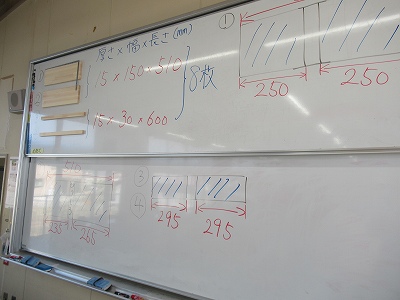 厚さ×幅×長さ(mm)
15×150×510
15×30×600
8枚
①
250
250
510
235
③
④
295
295